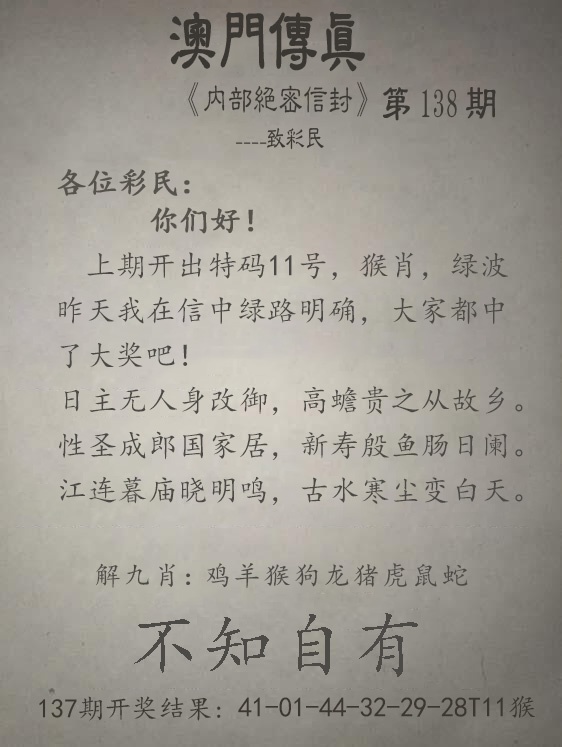 澳門傳眞
《内部絕密信封》第138期
----致彩民
各位彩民：
你们好！
上期开出特码11号，猴肖，绿波
昨天我在信中绿路明确，大家都中
了大奖吧！
日主无人身改御，高蟾贵之从故乡。
性圣成郎国家居，新寿殷鱼肠日阑。
江连暮庙晓明鸣，古水寒尘变白天。
解九肖：鸡羊猴狗龙猪虎鼠蛇
不知自有
137期开奖结果：41-01-44-32-29-28T11猴